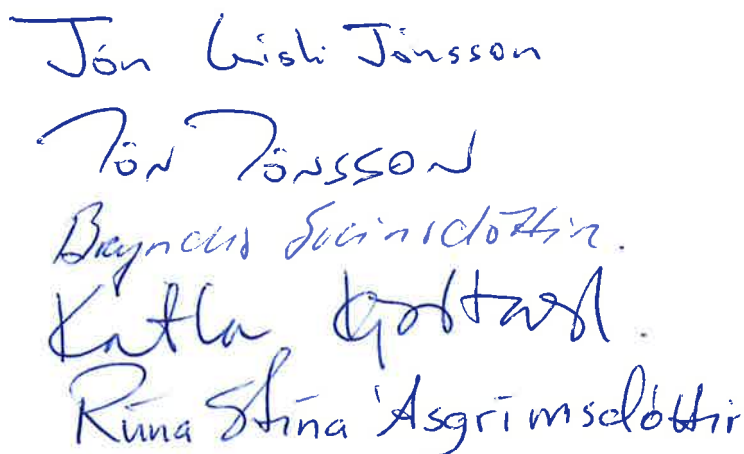 Jón Gísli Jónsson
Jón Jónsson
Bryndís Sveinsdóttir.
Katla
Rúna Stína Ásgrímsdóttir